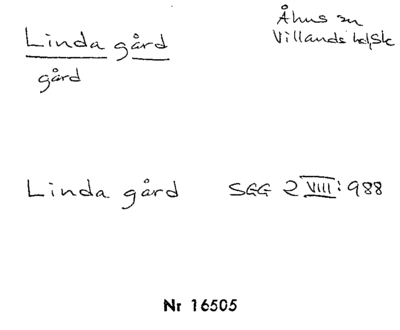 Linda gård
Åhus sn
Villands hd, Sk
gård
Linda gård SGG 2 VIII: 988
Nr 16505